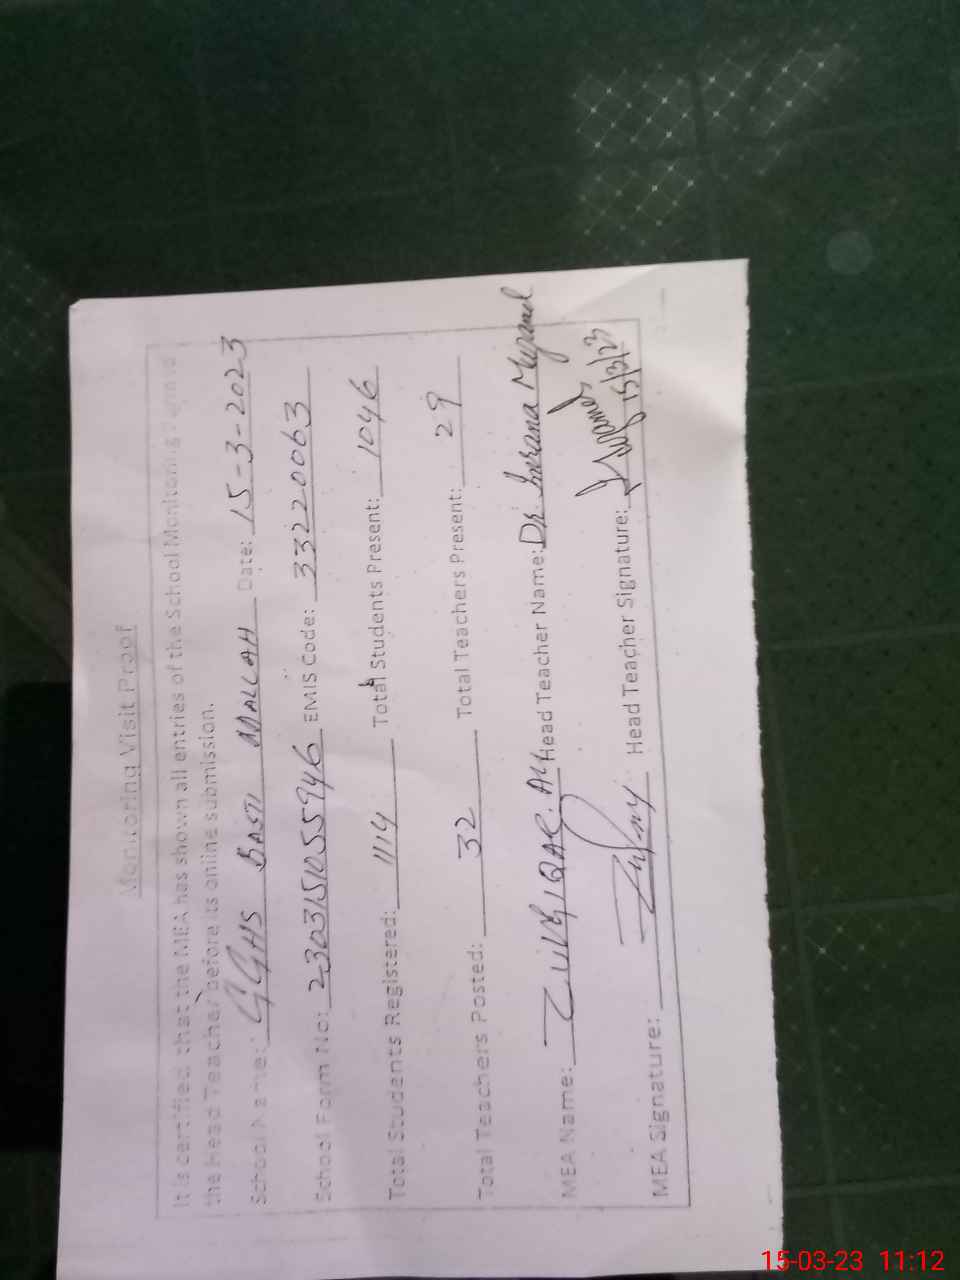 Monitoring Visit Proof
It is certified that the MEA has shown all entries of the School Monitoring
the Head Teacher before its online submission.
School Name: GGHS BASTI MALLAH Date: 15-3-2023
School Form No: 230315105 5946 EMIS Code: 33220063
Total Students Registered: 1114 Total Students Present: 1046
Total Teachers Posted: 32 Total Teachers Present: 29
MEA Name: ZULFIQAR ALI Head Teacher Name: Dr.
MEA Signature: Head Teacher Signature: 15/3/23
15-03-23 11:12